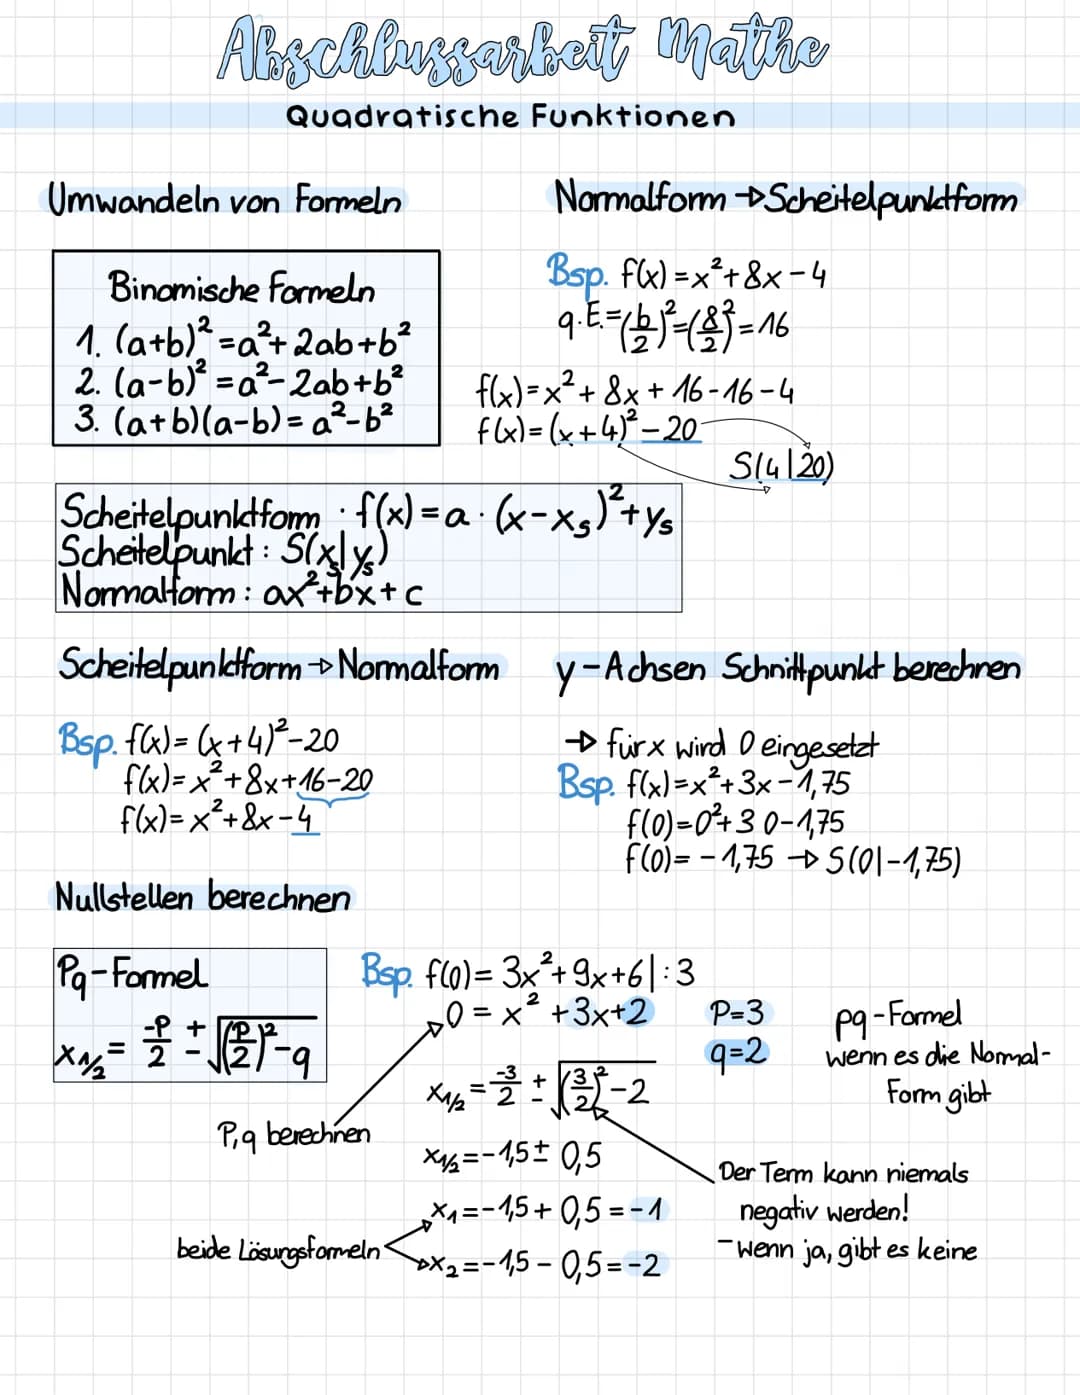 Abschlussarbeit Mathe
Quadratische Funktionen
Umwandeln von Formeln
Binomische Formeln
1. (a+b)² = a²+2ab+b²
2. (a-b)² = a²-2ab+b²
3. (a+b)(a-b) = a²-b²
Normalform → Scheitelpunktform
Bsp. f(x) = x²+8x-4
q.E. = (b/2)² = (8/2)² = 16
f(x) = x²+8x+16-16-4
f(x) = (x+4)²-20
S(4|20)
Scheitelpunktform : f(x) = a · (x-xₛ)²+yₛ
Scheitelpunkt : S(xₛ|yₛ)
Normalform : ax²+bx+c
Scheitelpunktform → Normalform
Bsp. f(x) = (x+4)²-20
f(x) = x²+8x+16-20
f(x) = x²+8x-4
y-Achsen Schnittpunkt berechnen
→ für x wird 0 eingesetzt
Bsp. f(x) = x²+3x-1,75
f(0) = 0²+3 0-1,75
f(0) = -1,75 → S(0|-1,75)
Nullstellen berechnen
Pq-Formel
x₁/₂ = -P/2 ± √(P/2)²-q
Bsp. f(0) = 3x²+9x+6 |:3
0 = x²+3x+2
P=3
q=2
pq-Formel
wenn es die Normal-
Form gibt
x₁/₂ = -3/2 ± √(3/2)²-2
P,q berechnen
x₁/₂ = -1,5 ± 0,5
x₁ = -1,5 + 0,5 = -1
beide Lösungsformeln
x₂ = -1,5 - 0,5 = -2
Der Term kann niemals
negativ werden!
- wenn ja, gibt es keine